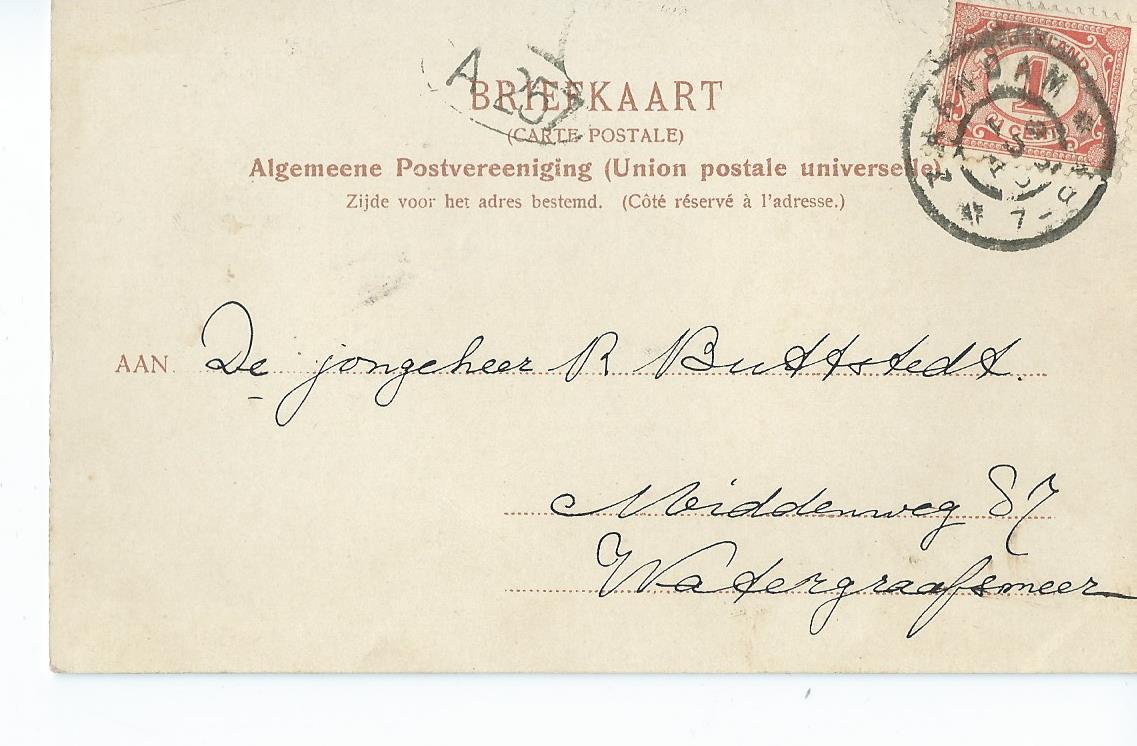 NEDERLAND
1
CENT
ZAANDAM
A 25
BRIEFKAART
(CARTE POSTALE)
Algemeene Postvereeniging (Union postale universelle)
Zijde voor het adres bestemd. (Côté réservé à l'adresse.)
AAN De jongeheer R Buttstedt.
Middenweg 87
Watergraafsmeer